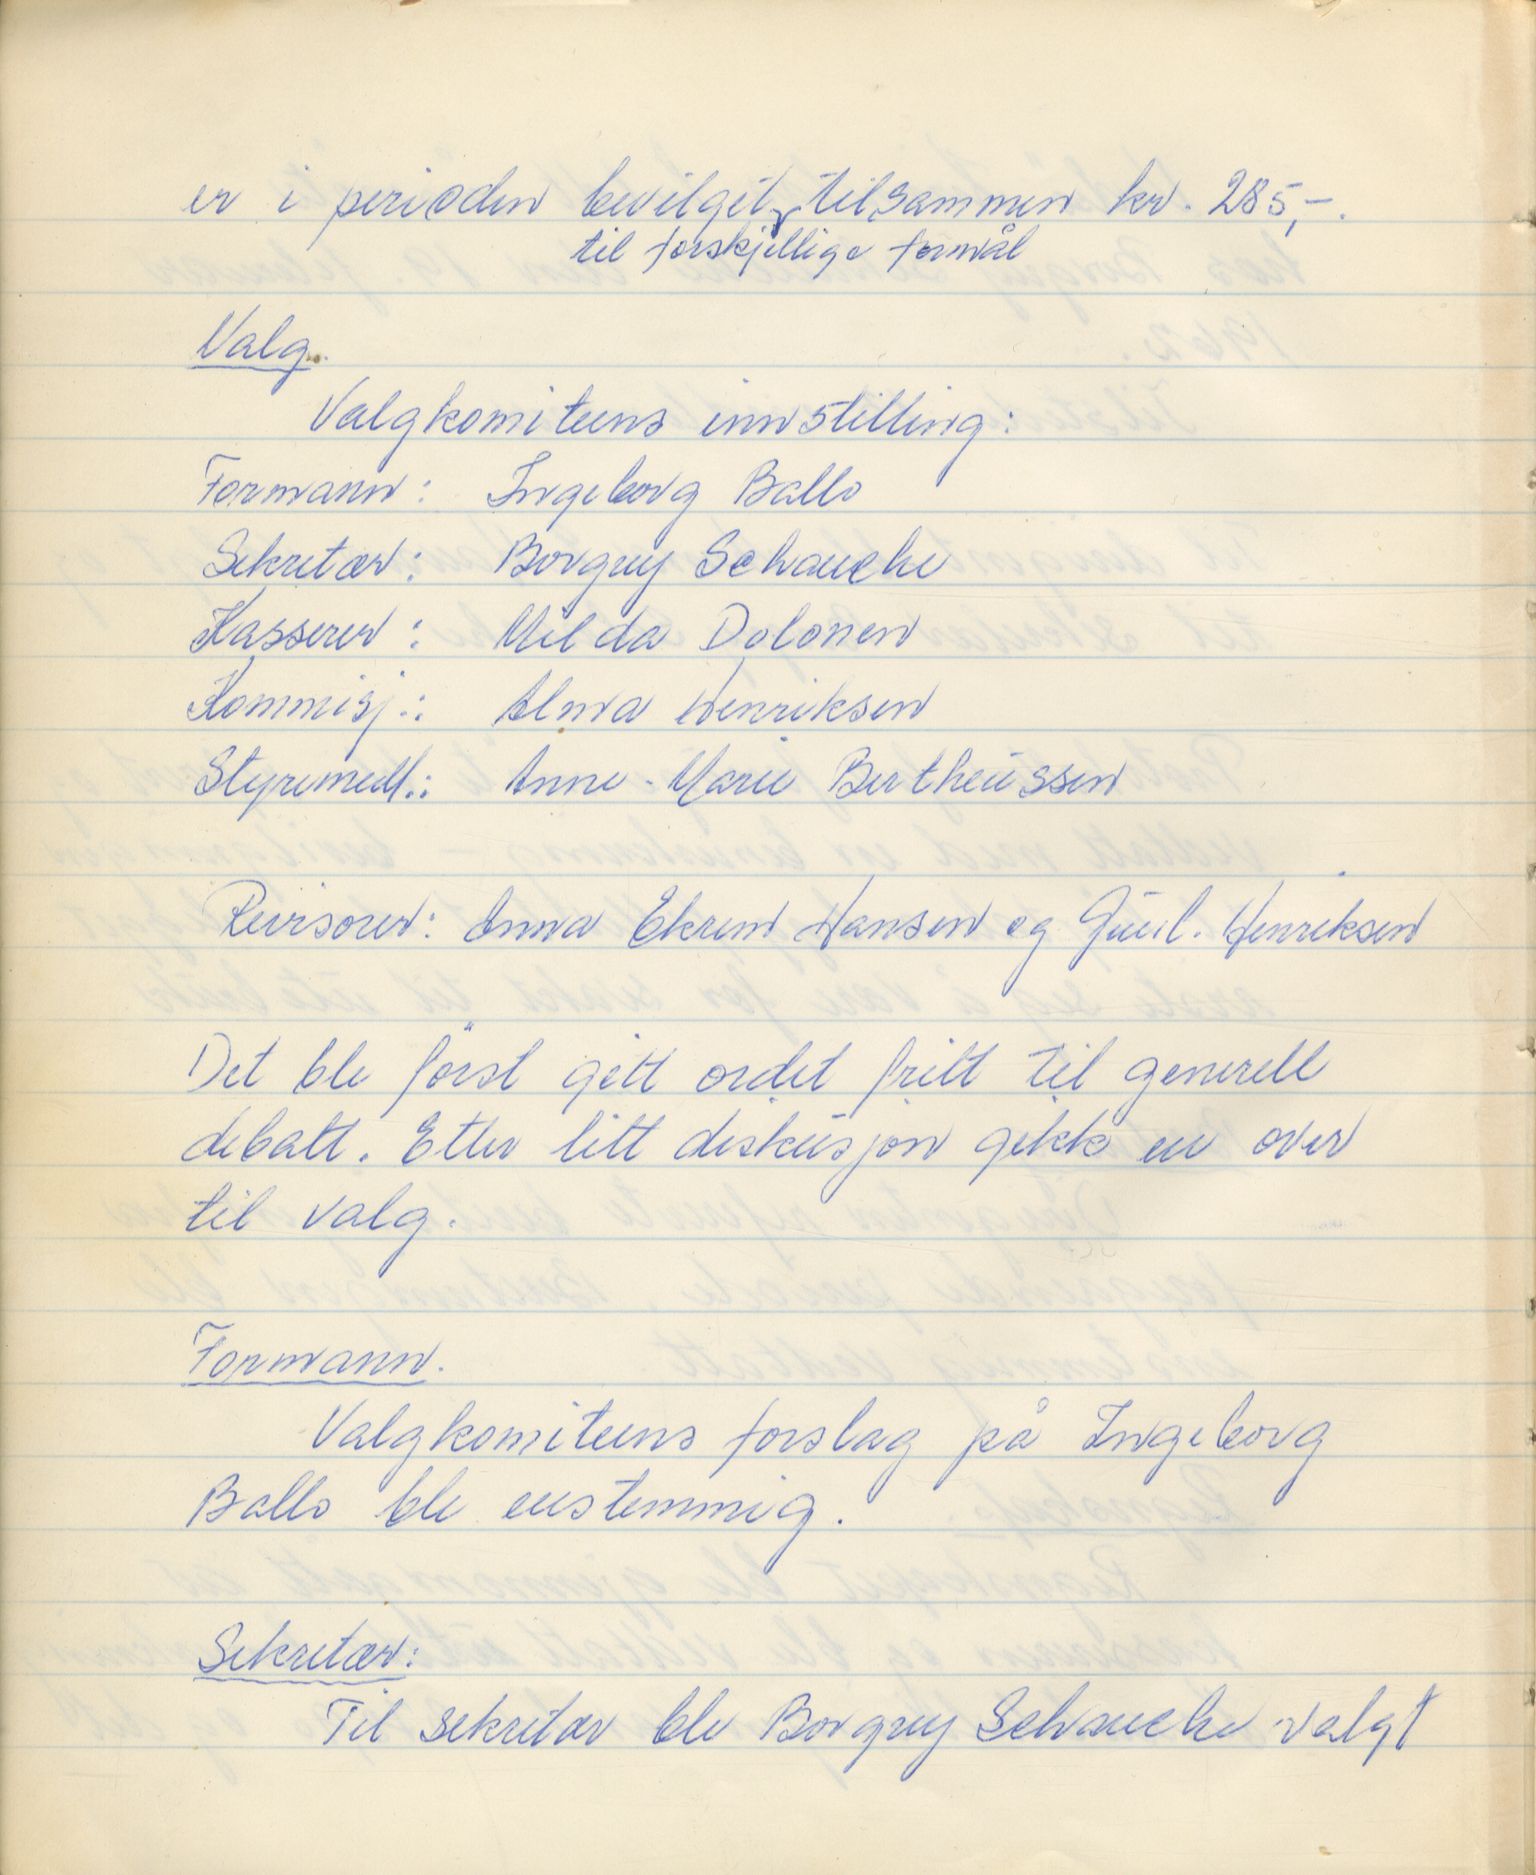 er i perioden bevilget tilsammen kr. 285,-.
til forskjellige formål
Valg.
Valgkomiteens innstilling:
Formann: Ingeborg Ballo
Sekretær: Borgny Schancke
Kasserer: Milda Dolonen
Kommisj.: Alma Henriksen
Styremedl.: Anne-Marie Bertheussen
Revisorer: Anna Ekrem Hansen og Henriksen
Det ble först gitt ordet fritt til generell
debatt. Etter litt diskusjon gikk en over
til valg.
Formann.
Valgkomiteens forslag på Ingeborg
Ballo ble enstemmig.
Sekretær:
Til sekretær ble Borgny Schancke valgt